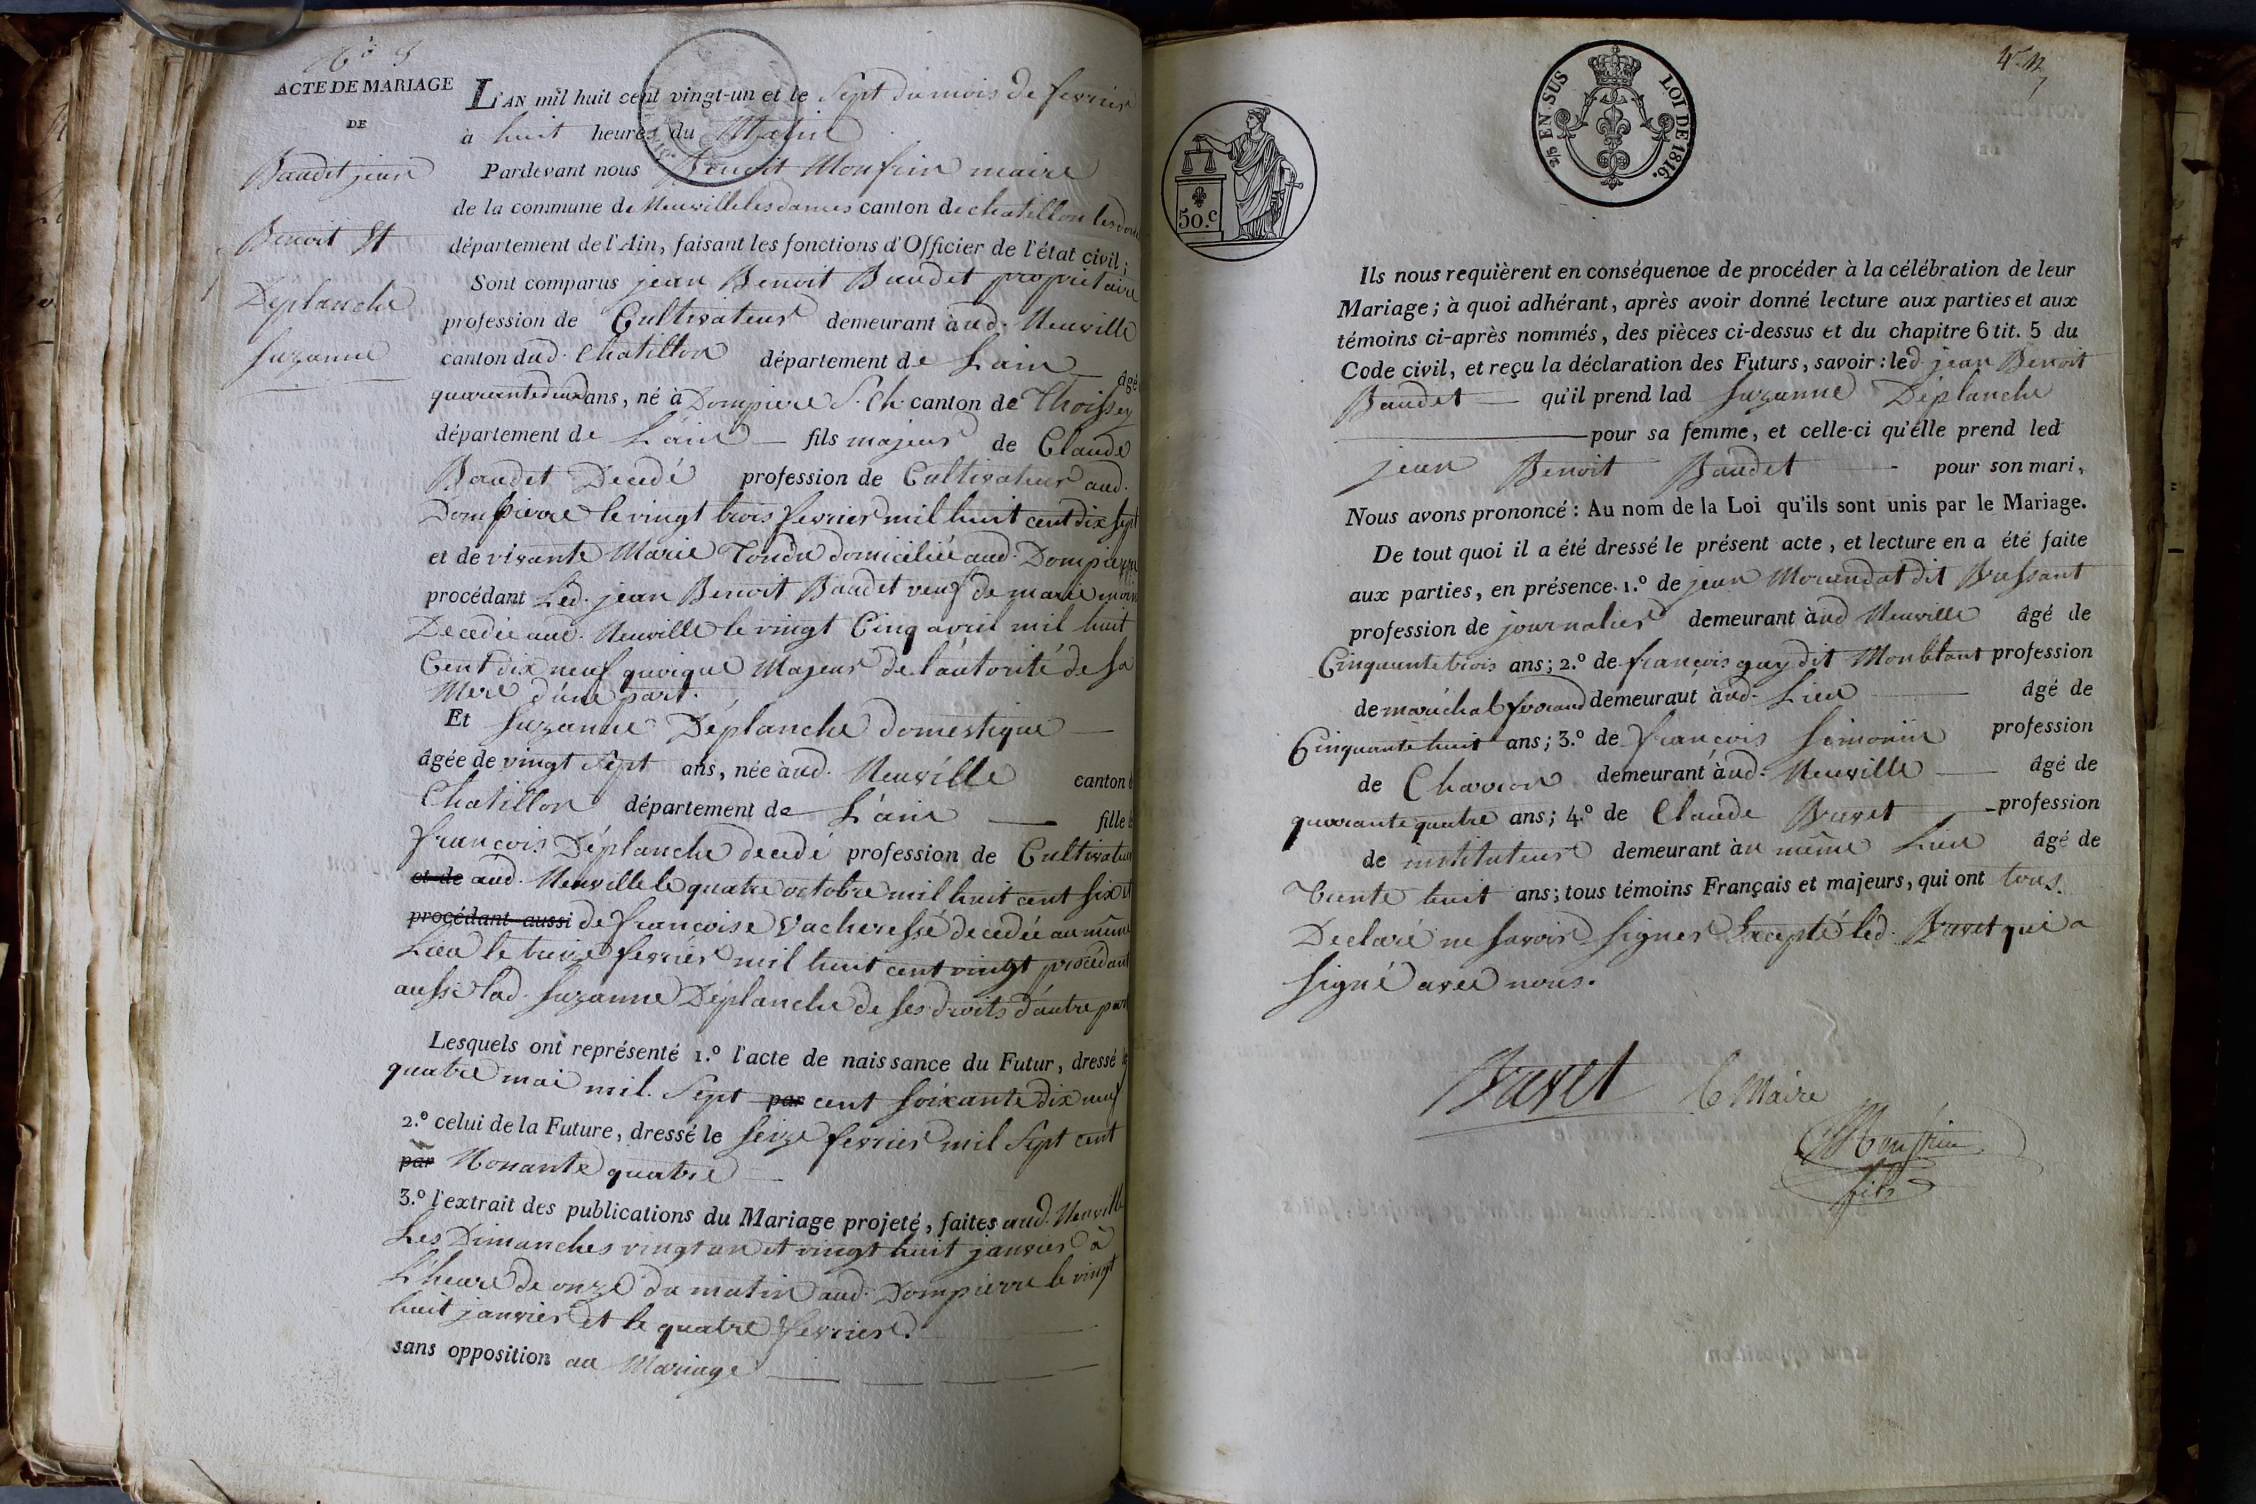 ACTE DE MARIAGE
DE
Baudet jean
Benoit Et
Déplanche
Suzanne
L'AN mil huit cent vingt-un et le Sept du mois de fevrier
à huit heures du Matin
Pardevant nous Benoit Monfrin maire
de la commune de Neuvillelesdames canton de chatillon les dom
département de l'Ain, faisant les fonctions d'Officier de l'état civil;
Sont comparus jean Benoit Baudet propriétaire
profession de Cultivateur demeurant àud. Neuville
canton dud. Chatillon département de L'ain âgé
quarante deux ans, né à Dompierre S. Ch. canton de Thoissey
département de L'ain fils majeur de Claude
Baudet Décédé profession de Cultivateur aud.
Dompierre le vingt trois fevrier mil huit cent dix sept
et de vivante Marie Tondu domiciliée aud. Dompierre
procédant Led. jean Benoit Baudet veuf de marie
Decedée aud. Neuville le vingt Cinq avril mil huit
Cent dix neuf quoique Majeur de l'autorité de sa
Mere d'une part.
Et Suzanne Déplanche domestique
âgée de vingt Sept ans, née àud. Neuville canton
Chatillon département de L'ain fille
françois Déplanche decedé profession de Cultivateur
et de aud. Neuville le quatre octobre mil huit cent six et
procédant aussi de francoise Vacheresse decedée au même
Lieu le treize fevrier mil huit cent vingt procédant
aussi lad. Suzanne Déplanche de ses droits d'autre part
Lesquels ont représenté 1.º l'acte de naissance du Futur, dressé le
quatre mai mil. Sept par cent soixante dix neuf
2.º celui de la Future, dressé le seize fevrier mil Sept cent
par Nonante quatre
3.º l'extrait des publications du Mariage projeté, faites aud. Neuville
Les Dimanches vingt un et vingt huit janvier à
L'heure de onze du matin aud. Dompierre le vingt
huit janvier et le quatre fevrier.
sans opposition au Mariage
25 EN SUS LOI DE 1816.
50.c
Ils nous requièrent en conséquence de procéder à la célébration de leur
Mariage; à quoi adhérant, après avoir donné lecture aux parties et aux
témoins ci-après nommés, des pièces ci-dessus et du chapitre 6 tit. 5 du
Code civil, et reçu la déclaration des Futurs, savoir: led. jean Benoit
Baudet qu'il prend lad Suzanne Déplanche
pour sa femme, et celle-ci qu'elle prend led
jean Benoit Baudet pour son mari,
Nous avons prononcé: Au nom de la Loi qu'ils sont unis par le Mariage.
De tout quoi il a été dressé le présent acte, et lecture en a été faite
aux parties, en présence. 1.º de jean dit Bressant
profession de journalier demeurant àud Neuville âgé de
Cinquante trois ans; 2.º de françois guy dit Monblant profession
de maréchal ferrand demeurant àud. Lieu âgé de
Cinquante huit ans; 3.º de françois Simonin profession
de Charron demeurant àud. Neuville âgé de
quarante quatre ans; 4.º de Claude Buret profession
de instituteur demeurant àu même Lieu âgé de
trente huit ans; tous témoins Français et majeurs, qui ont tous.
Declaré ne savoir signer Excepté led. Buret qui a
signé avec nous.
Buret Le Maire
Monfrin
fils